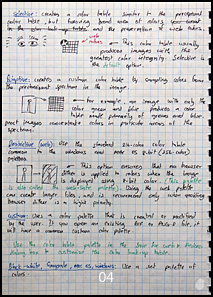 Selective: creates a color table similar to the perceptual
color table, but favoring broad areas of colors
and the preservation of web colors.
This color table usually
produces images with the
greatest color integrity. Selective is
Adaptive: creates a custom color table by sampling colors from
the predominant spectrum in the image
for example, an image with only the
colors green and blue produces a color
table made primarily of greens and blues.
most images concentrate colors in particular areas of the
spectrum.
Restrictive (web): Use the standard 216-color color table
common to the windows and mac OS 8-bit (256-color)
palettes.
This option ensures that no browser
dither is applied to colors when the image
is displayed using 8-bit color. (This palette
is also called the web-safe palette). Using the web palette
can create larger files and is recommended only when avoiding
browser dither is a high priority.
Custom: Uses a color palette that is created or modified
by the user. If you open an existing GIF or PNG-8 file, it
will have a custom color palette.
Use the color table palette in the Save for web & Devices
dialog box to customize the color look-up table.
Black-white, Grayscale, mac OS, windows: Use a set palette of
colors.
04